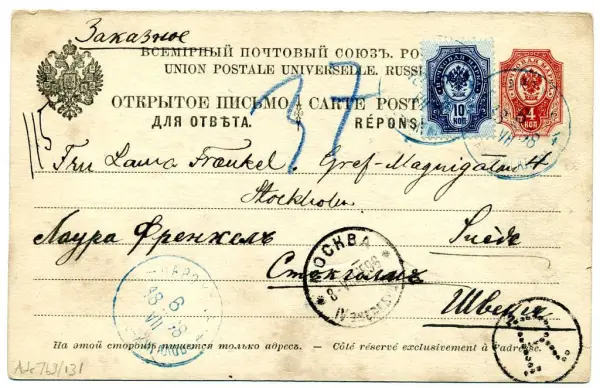 Заказное
ВСЕМІРНЫЙ ПОЧТОВЫЙ СОЮЗЪ. РО
UNION POSTALE UNIVERSELLE. RUSSI
ОТКРЫТОЕ ПИСЬМО CARTE POST
ДЛЯ ОТВѢТА. RÉPONS
37
10 КОП
4 КОП
115
Fru Laura Frænkel. Gref-Magnigatan 4
Stockholm
Лаура Френкель Suède
Стокгольмъ
Швеція
МОСКВА
На этой сторонѣ пишется только адресъ. — Côté réservé exclusivement à l'adresse.